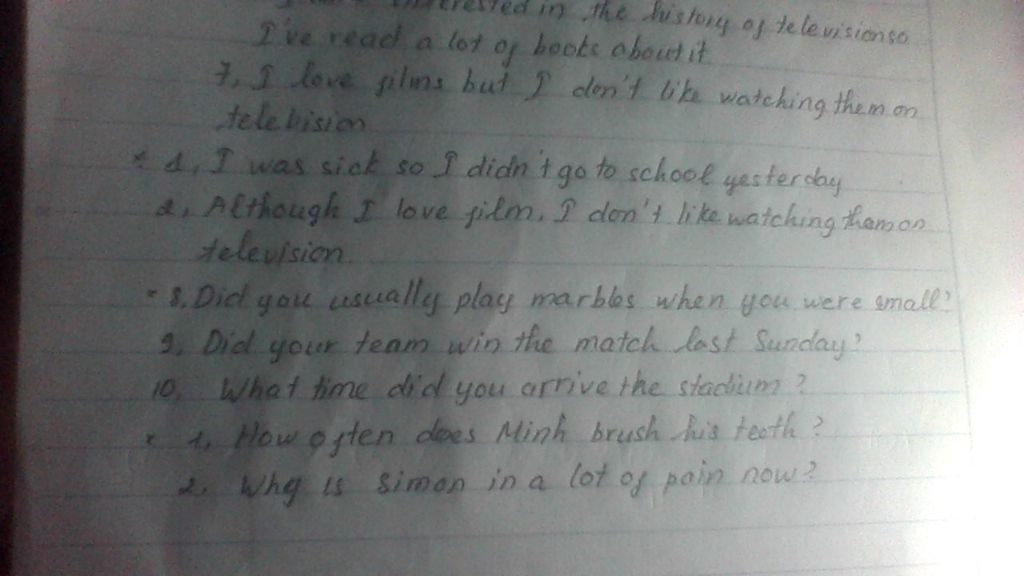 interested in the history of television so
I've read a lot of books about it
7, I love films but I don't like watching them on
telebision
* 1, I was sick so I didn't go to school yesterday
2, Although I love film, I don't like watching them on
television
* 8. Did you usually play marbles when you were small?
9, Did your team win the match last Sunday?
10, What time did you arrive the stadium?
* 1, How often does Minh brush his teeth?
2, Why is Simon in a lot of pain now?